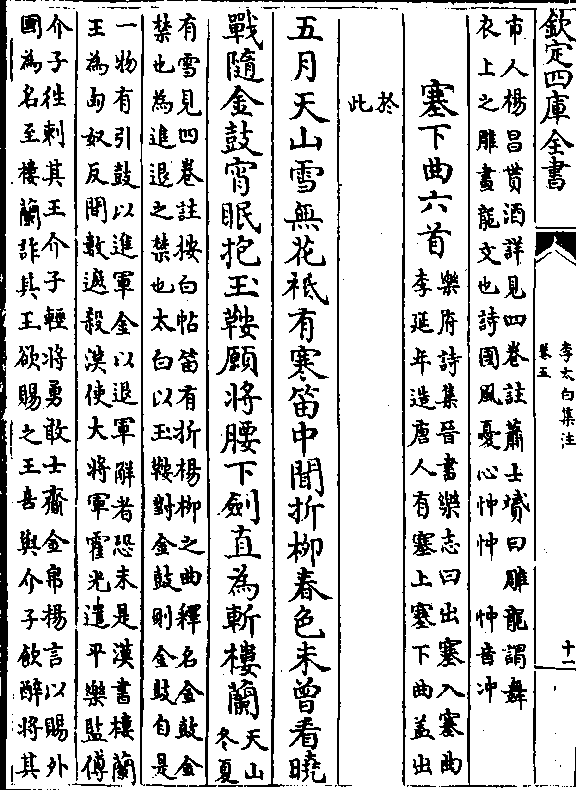 欽定四庫全書
李太白集注
卷五
十一
市人楊昌貰酒詳見四卷註蕭士贇曰雕龍謂舞
衣上之雕畫龍文也詩國風憂心忡忡　忡音冲
塞下曲六首
樂府詩集晉書樂志曰出塞入塞曲
李延年造唐人有塞上塞下曲盖出
於
此
五月天山雪無花祗有寒笛中聞折柳春色未曾看曉
戰隨金鼓宵眠抱玉鞍願將腰下劍直為斬樓蘭
天山
冬夏
有雪見四卷註按白帖笛有折楊柳之曲釋名金鼓金
禁也為進退之禁也太白以玉鞍對金鼓則金鼓自是
一物有引鼓以進軍金以退軍解者恐未是漢書樓蘭
王為匈奴反間數遮殺漢使大將軍霍光遣平樂監傅
介子徃刺其王介子輕將勇敢士齎金帛揚言以賜外
國為名至樓蘭詐其王欲賜之王喜與介子飲醉將其